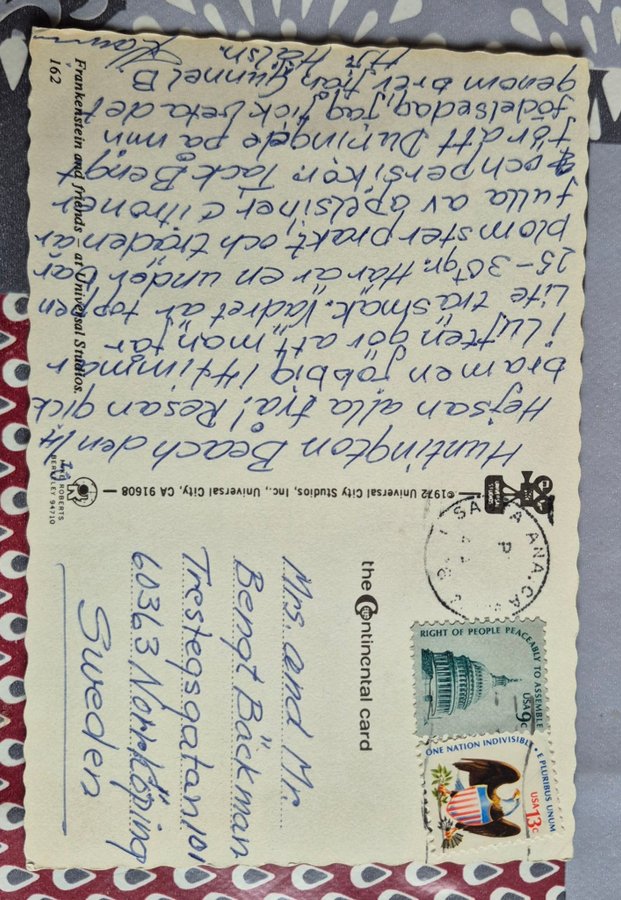 Huntington Beach den 14
Hejsan alla två! Resan gick
bra men jobbig 14 timmar
i Luften gör att man får
lite träsmak. Vädret är toppen
25-30 gr. Här är en underbar
blomsterprakt och träden är
fulla av apelsiner citroner
och persikor. Tack Bengt
för att Du ringde på min
födelsedag, jag fick veta det
genom brev från Gunnel B.
Hälsn.
Frankenstein and friends – at Universal Studios.
162
©1972 Universal City Studios, Inc., Universal City, CA 91608
MIKE ROBERTS
BERKELEY 94710
the Continental card
ANA, CA
RIGHT OF PEOPLE PEACEABLY TO ASSEMBLE
USA 9c
ONE NATION INDIVISIBLE • E PLURIBUS UNUM
USA 13c
Mrs. and Mr.
Bengt Bäckman
Trestegsgatan 101
60363 Norrköping
Sweden